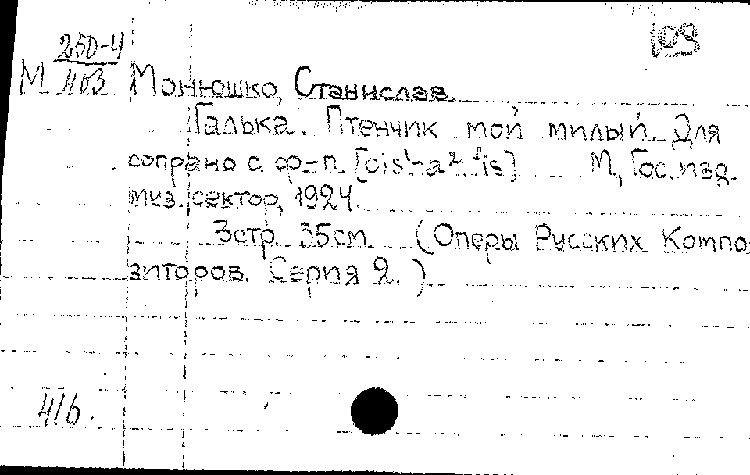 109
М 250-4/403 Монюшко, Станислав.
Галька. Птенчик мой милый. Для
сопрано с ф-п. [cis¹-a² fis] М., Гос. изд.
муз. сектор, 1924.
3 стр. 35 см. (Оперы Русских Компо-
зиторов. Серия 2.)
416.